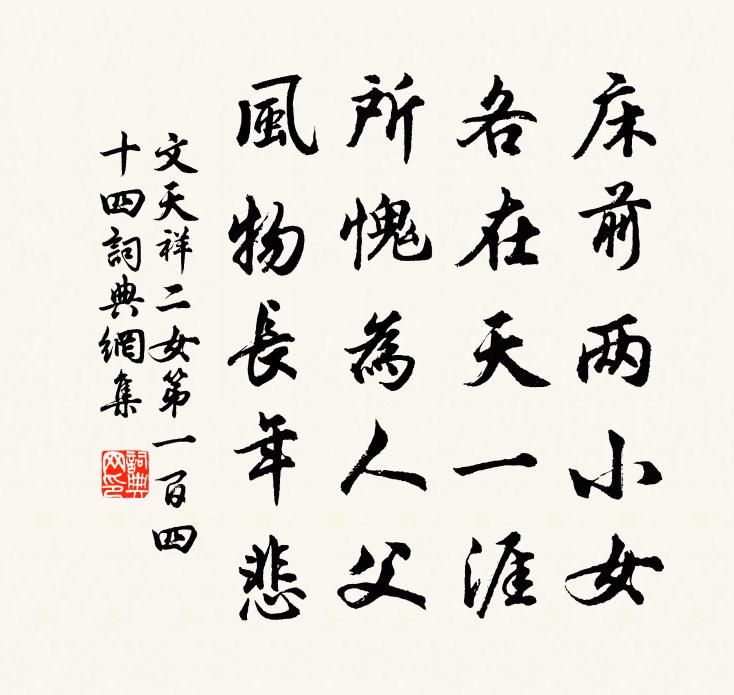 床前两小女
各在天一涯
所愧為人父
風物長年悲
文天祥二女第一百四
十四詞典網集
詞典
网印